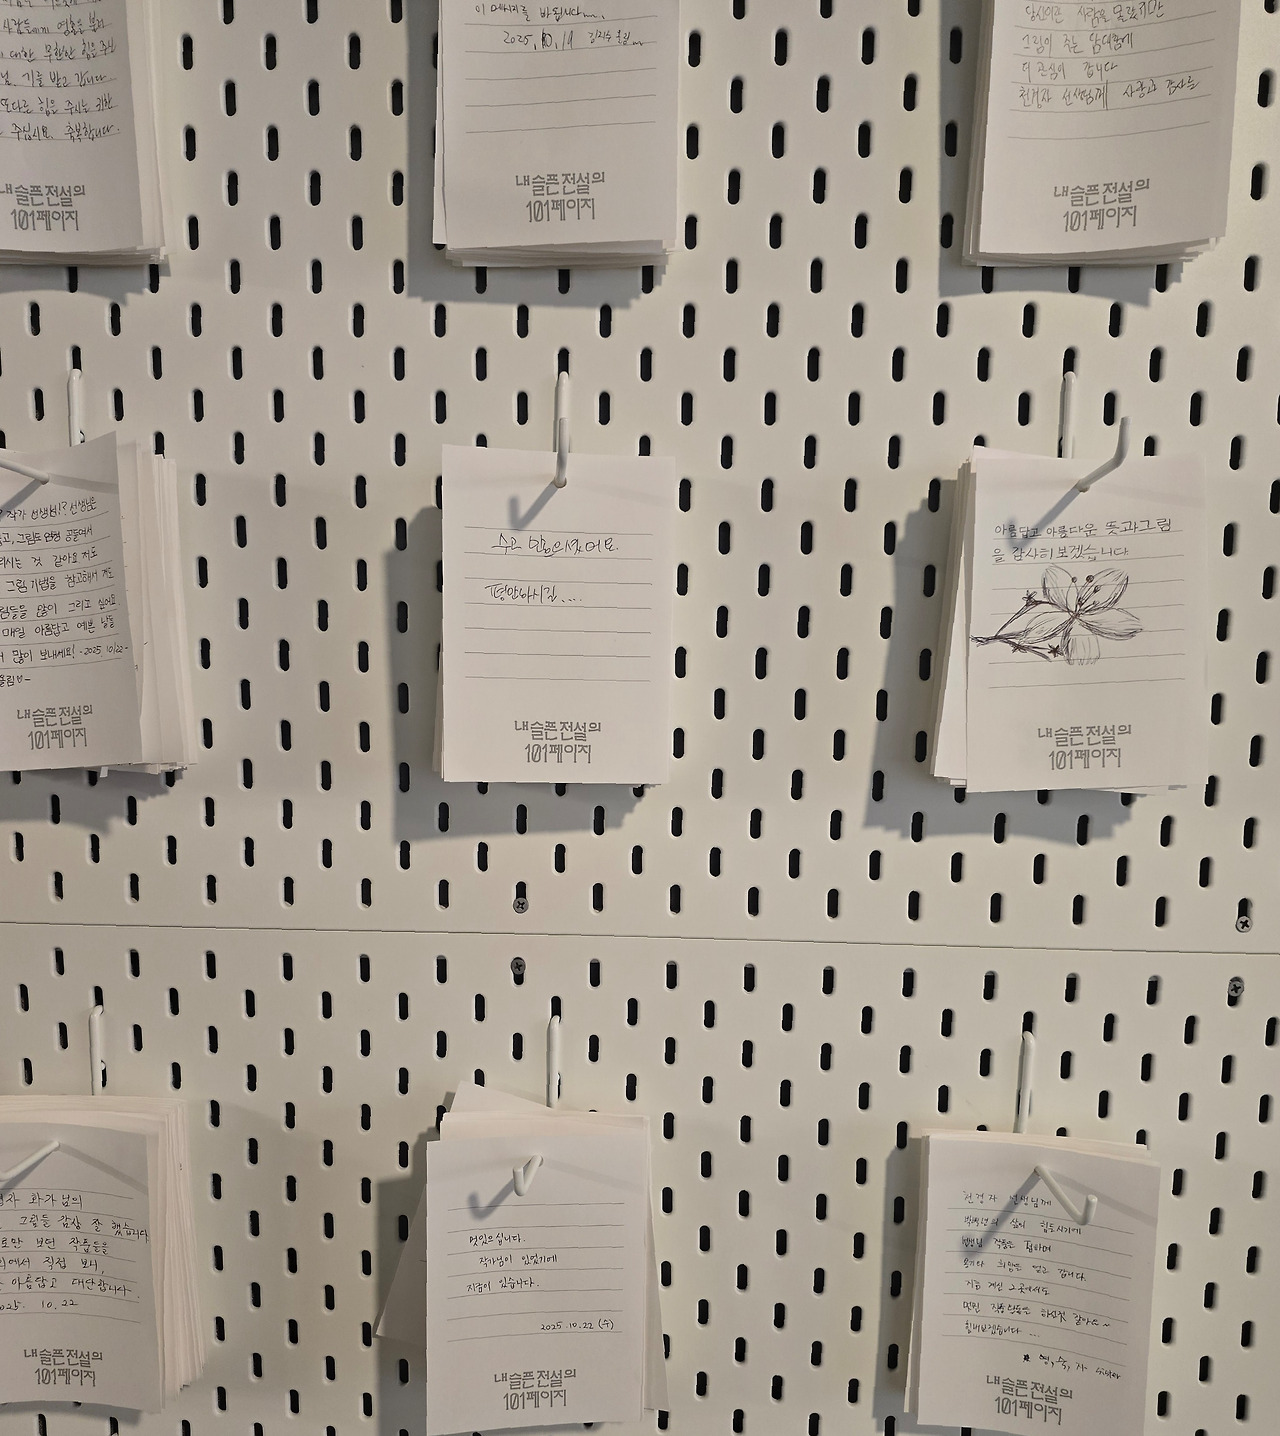 사람들에게 영혼을 불어
대한 무한한 힘을 주신
기를 받고 갑니다
또다른 힘을 주시는 귀한
주십시요. 축복합니다.
내 슬픈 전설의
101페이지
이 메시지를 바칩니다
2025. 10. 19
내 슬픈 전설의
101페이지
당신이란 사람을 몰랐지만
그림이 주는
더 관심이 갑니다
천경자 선생님께 사랑과 감사를
내 슬픈 전설의
101페이지
작가 선생님!? 선생님은
그림도 엄청 공들여서
하시는 것 같아요 저도
그림 기법을 참고해서 저도
그림들을 많이 그리고 싶어요
매일 아름답고 예쁜 날들
많이 보내세요! -2025 10/22-
내 슬픈 전설의
101페이지
수고 많으셨어요.
평안하시길....
내 슬픈 전설의
101페이지
아름답고 아름다운 뜻과 그림
을 감사히 보겠습니다.
내 슬픈 전설의
101페이지
화가님의
그림들 감상 잘 했습니다.
보던 작품들을
에서 직접 보니,
아름답고 대단합니다.
2025. 10. 22
내 슬픈 전설의
101페이지
멋있으십니다.
작가님이 있었기에
지금이 있습니다.
2025.10.22 (수)
내 슬픈 전설의
101페이지
천경자 선생님께
삶이 힘드시기에
선생님 작품을 접하며
용기와 희망을 얻고 갑니다.
지금 계신 그곳에서도
멋진 작품 활동을 하실것 같아요~
내 슬픈 전설의
101페이지